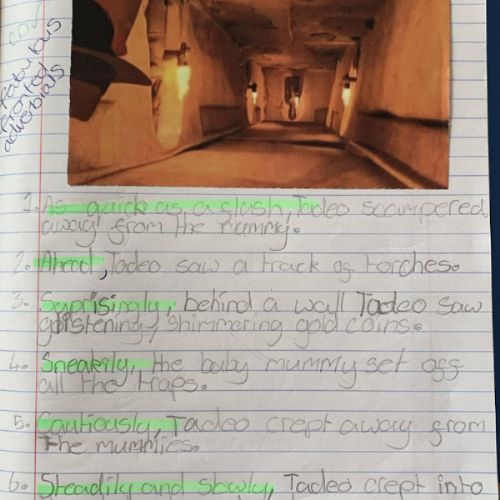 Fabulous
fronted
adverbials
1. As quick as a flash, Tadeo scampered
away from the mummy.
2. Ahead, Tadeo saw a track of torches.
3. Suprisingly, behind a wall Tadeo saw
glistening, shimmering gold coins.
4. Sneakily, the baby mummy set off
all the traps.
5. Cautiously, Tadeo crept away from
the mummies.
6. Steadily and slowly, Tadeo crept into